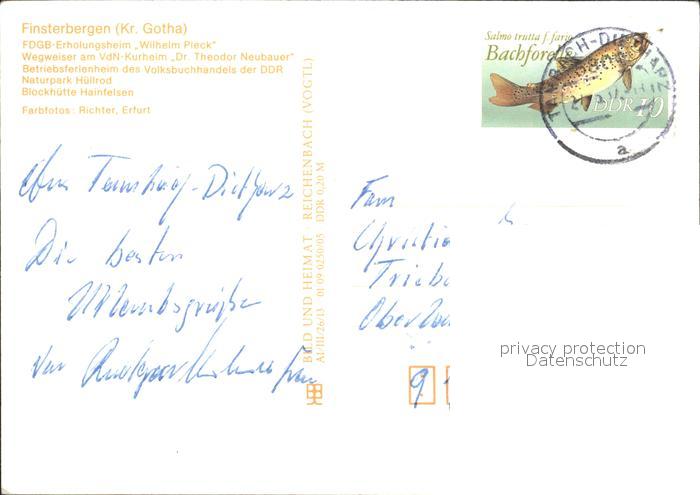 Finsterbergen (Kr. Gotha)
FDGB-Erholungsheim „Wilhelm Pieck"
Wegweiser am VdN-Kurheim „Dr. Theodor Neubauer"
Betriebsferienheim des Volksbuchhandels der DDR
Naturpark Hüllrod
Blockhütte Hainfelsen
Farbfotos: Richter, Erfurt
Salmo trutta f. fario
Bachforelle
DDR 10
TAMBACH-DIETHARZ
a
Tambach-Dietharz
Die besten
Urlaubsgrüße
von
BILD UND HEIMAT REICHENBACH (VOGTL)
A1/III/26/13 01 09 0250/05 DDR 0,20 M
Fam
Christia
Triebe
9
privacy protection
Datenschutz